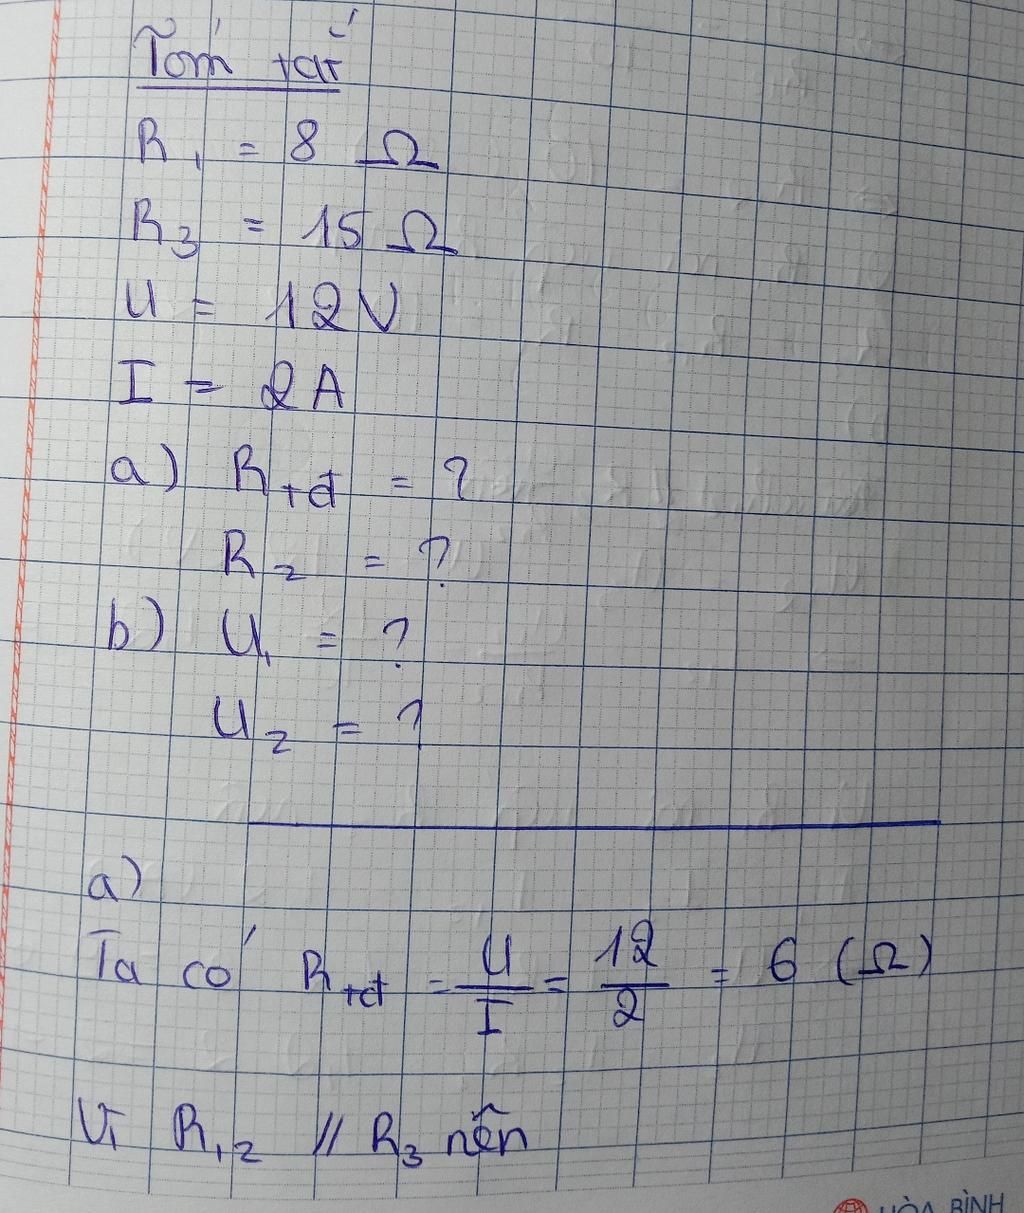 Tóm tắt
R₁ = 8 Ω
R₃ = 15 Ω
U = 12V
I = 2A
a) Rtđ = ?
R₂ = ?
b) U₁ = ?
U₂ = ?
a)
Ta có Rtđ = U/I = 12/2 = 6 (Ω)
Vì R₁₂ // R₃ nên
HÒA BÌNH